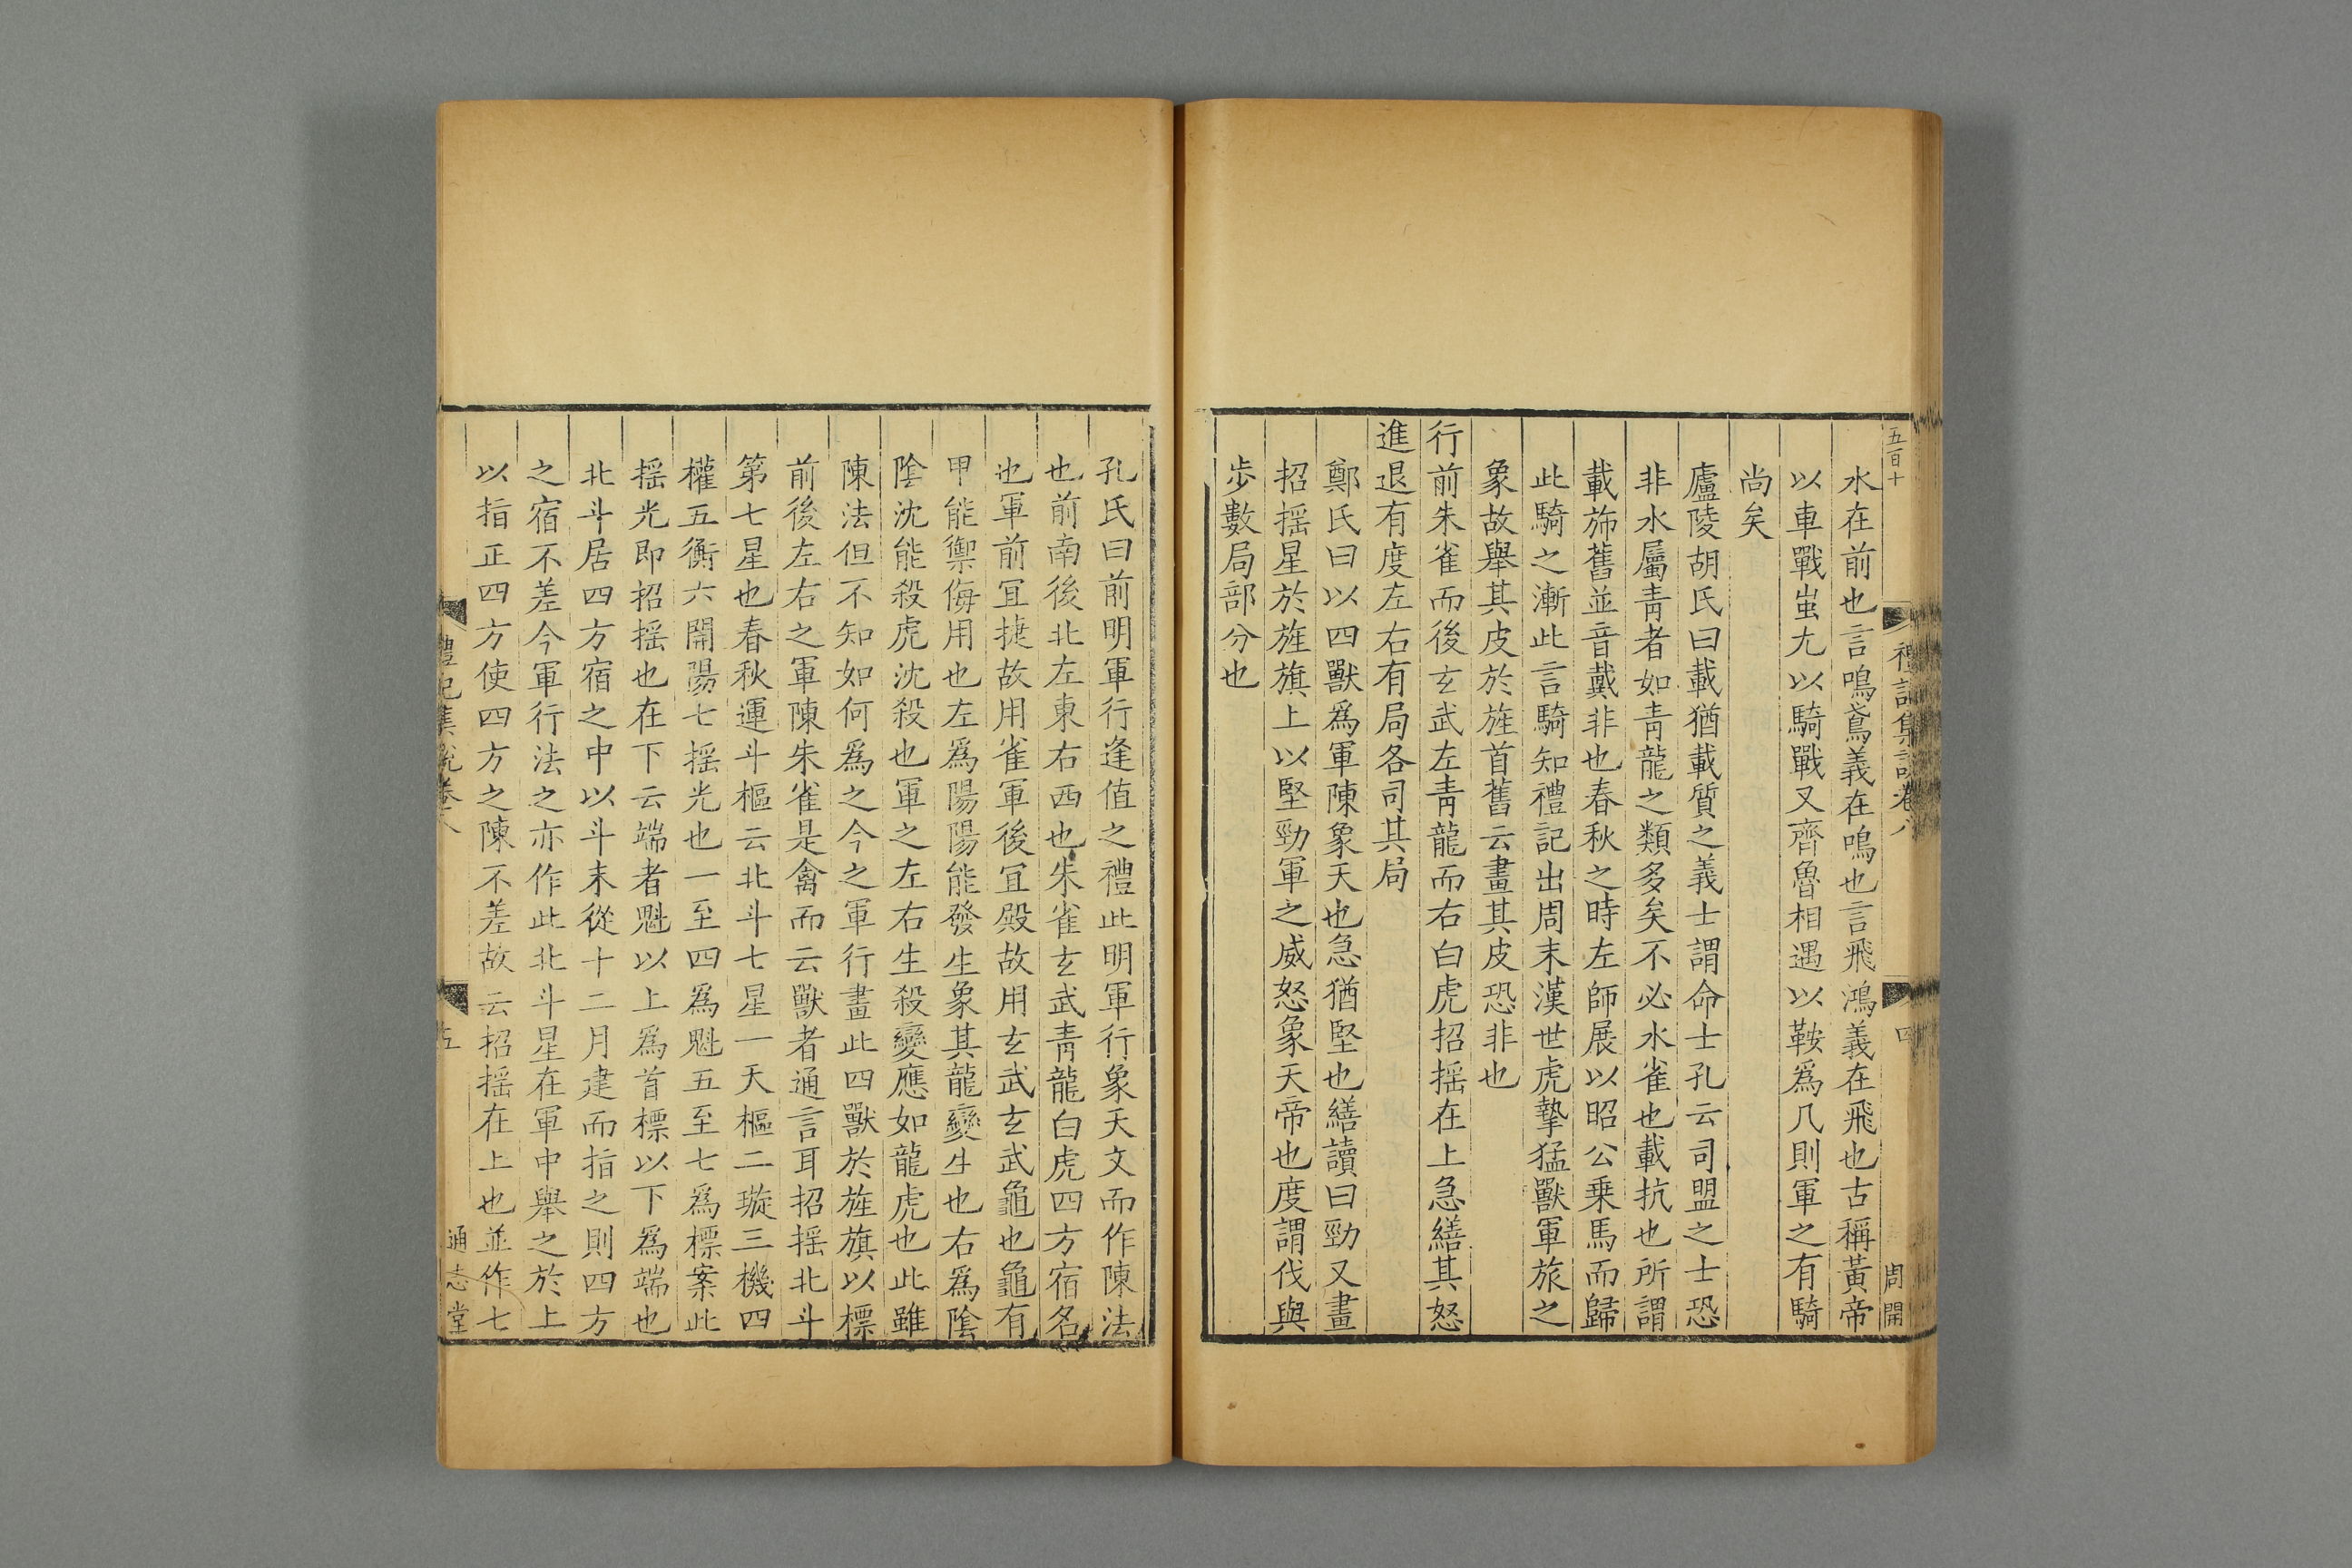 五百十
禮記集說卷八
四
周開
水在前也言鳴鳶義在鳴也言飛鴻義在飛也古稱黃帝
以車戰蚩尤以騎戰又齊魯相遇以鞍爲几則軍之有騎
尚矣
廬陵胡氏曰載猶載質之義士謂命士孔云司盟之士恐
非水屬青者如青龍之類多矣不必水雀也載抗也所謂
載斾舊並音戴非也春秋之時左師展以昭公乗馬而歸
此騎之漸此言騎知禮記出周末漢世虎摯猛獸軍旅之
象故舉其皮於旌首舊云畫其皮恐非也
行前朱雀而後玄武左青龍而右白虎招摇在上急繕其怒
進退有度左右有局各司其局
鄭氏曰以四獸爲軍陳象天也急猶堅也繕讀曰勁又畫
招摇星於旌旗上以堅勁軍之威怒象天帝也度謂伐與
步數局部分也
孔氏曰前明軍行逢值之禮此明軍行象天文而作陳法
也前南後北左東右西也朱雀玄武青龍白虎四方宿名
也軍前宜捷故用雀軍後宜殿故用玄武玄武龜也龜有
甲能禦侮用也左爲陽陽能發生象其龍變生也右爲隂
隂沈能殺虎沈殺也軍之左右生殺變應如龍虎也此雖
陳法但不知如何爲之今之軍行畫此四獸於旌旗以標
前後左右之軍陳朱雀是禽而云獸者通言耳招摇北斗
第七星也春秋運斗樞云北斗七星一天樞二璇三機四
權五衡六開陽七摇光也一至四爲魁五至七爲標案此
摇光即招摇也在下云端者魁以上爲首標以下爲端也
北斗居四方宿之中以斗末從十二月建而指之則四方
之宿不差今軍行法之亦作此北斗星在軍中舉之於上
以指正四方使四方之陳不差故云招摇在上也並作七
禮記集說卷八
五
通志堂